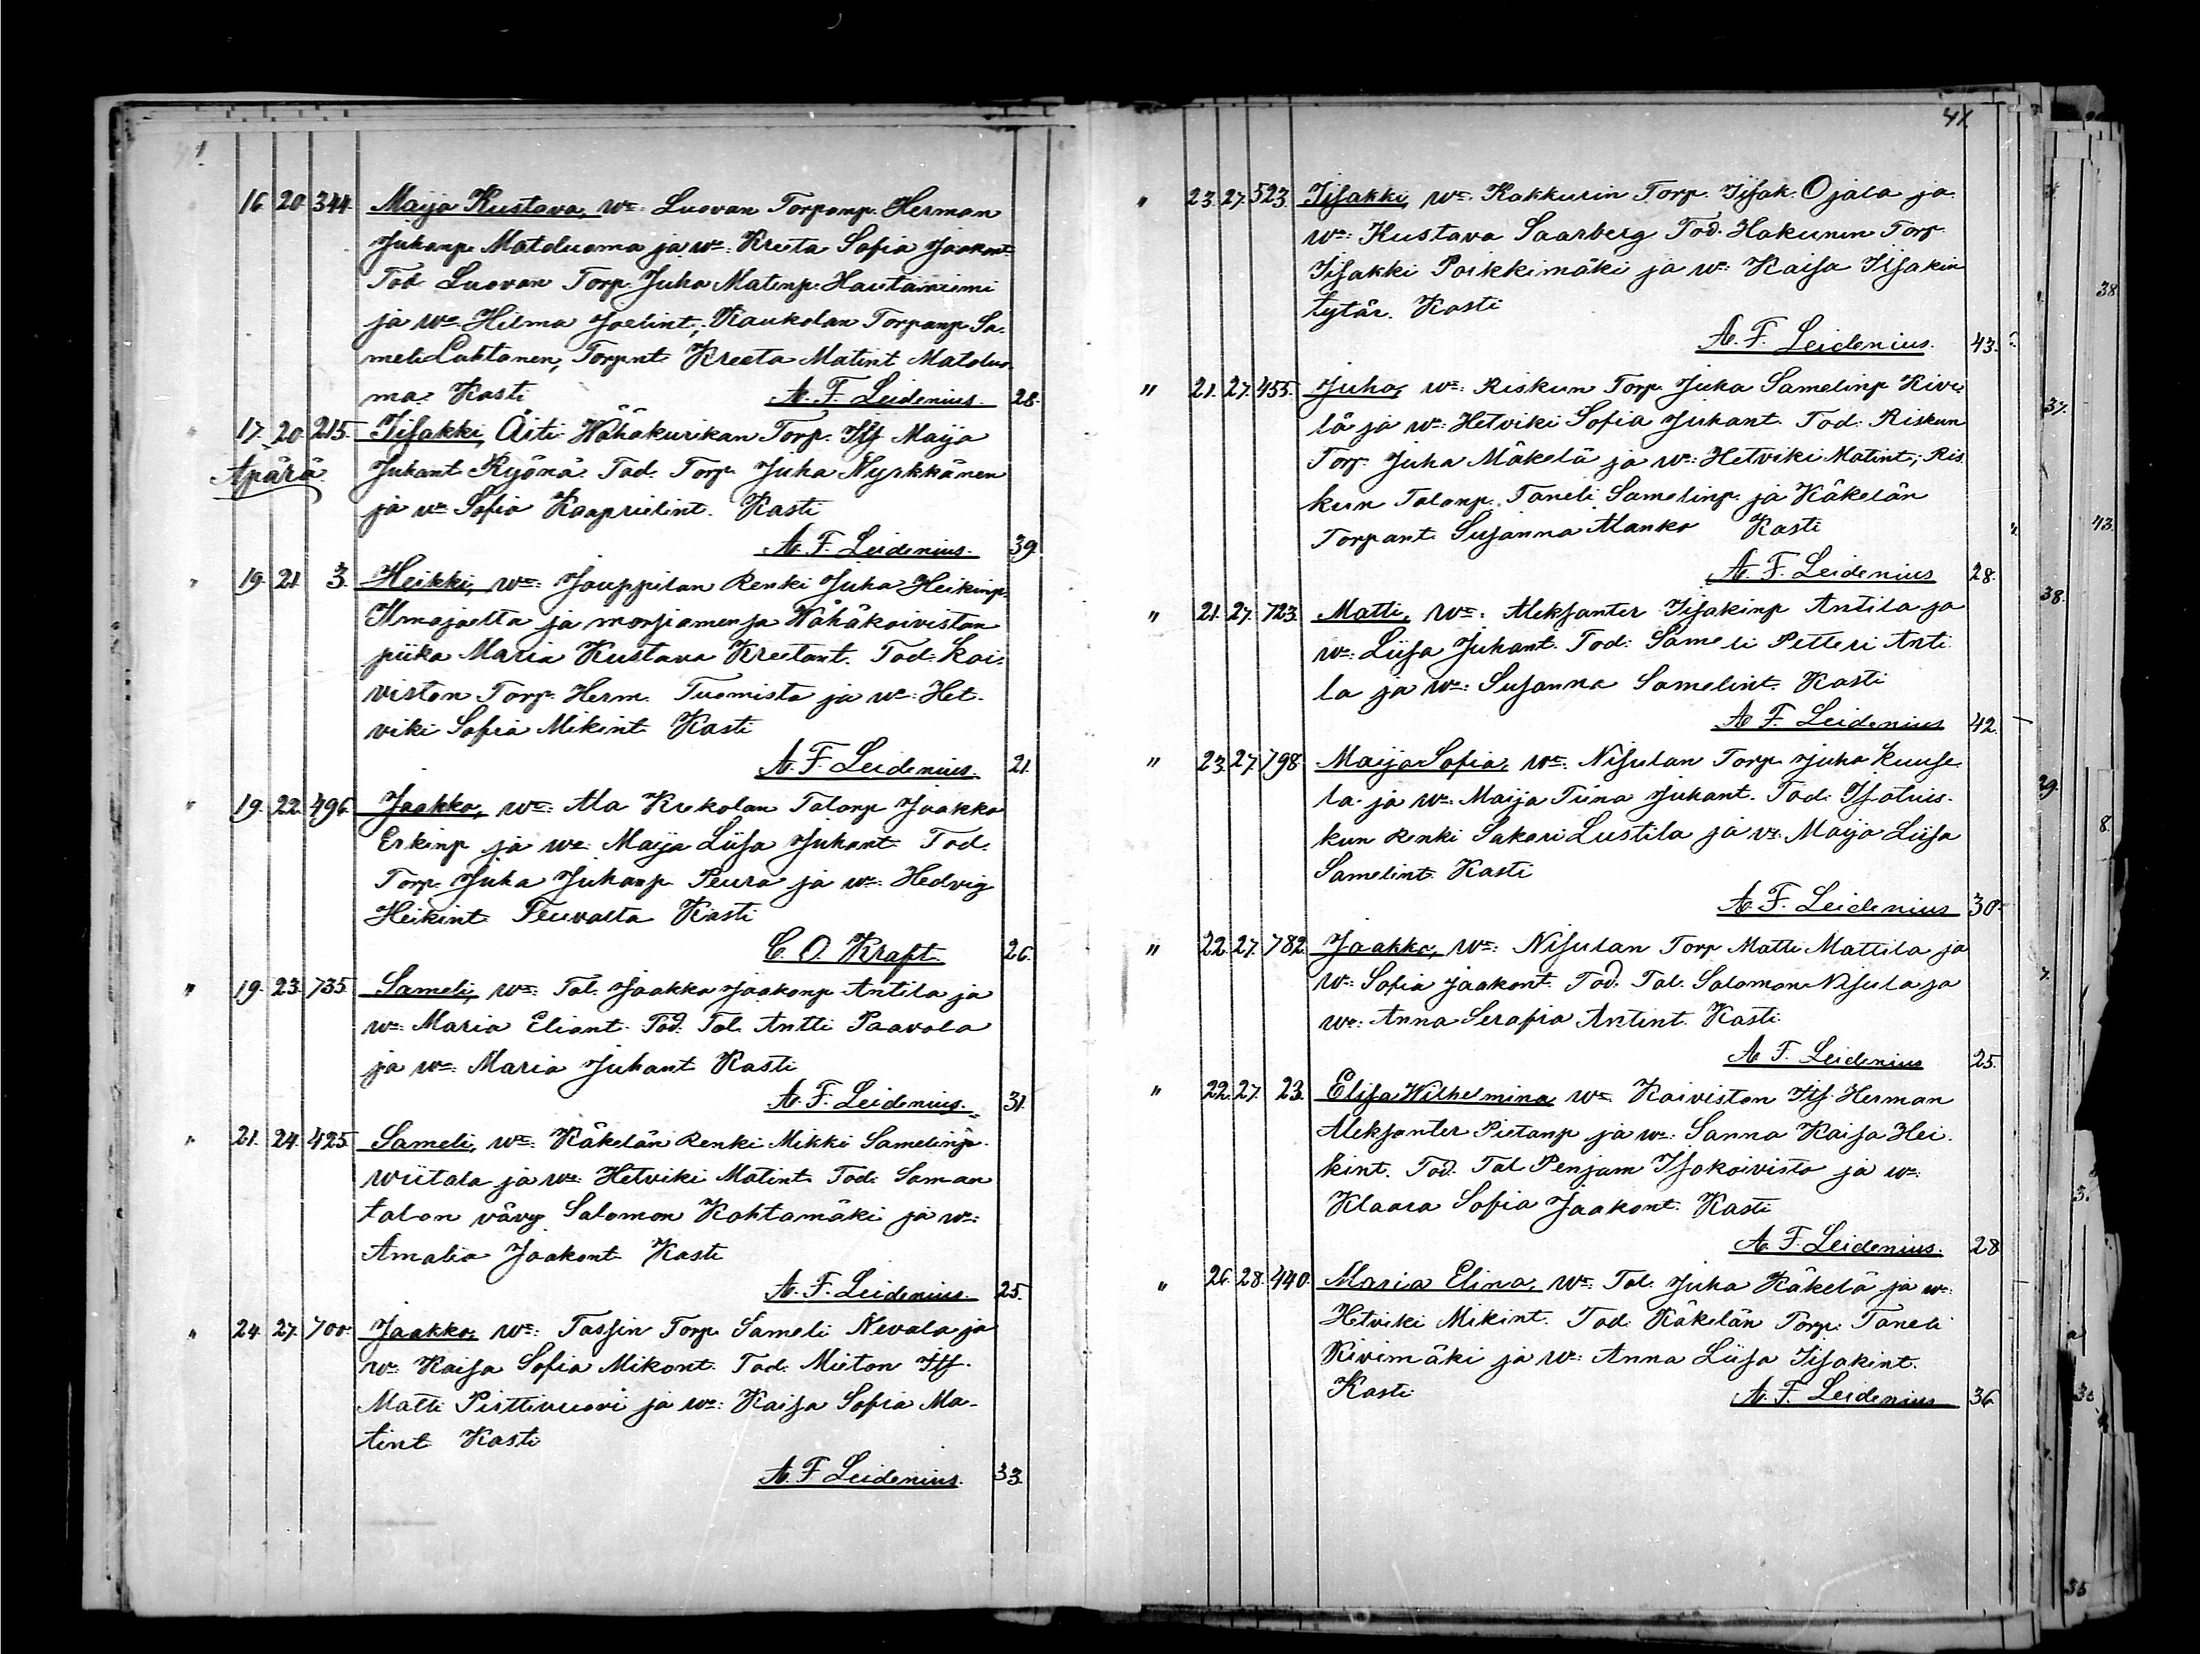 41.
16. 20. 344. Maija Kustava, Wm: Luovan Torpanp. Herman
Juhanp. Matoluoma ja wm: Kreeta Sofia Jaakont.
Tod. Luovan Torp. Juha Matinp. Hautaniemi
ja wm. Hilma Joelint., Kaukolan Torpanp. Sa-
meli Luhtanen, Torpnt. Kreeta Matint Matoluo
ma. Kasti A. F. Leidenius. 28.
17. 20. 215. Iisakki, Äiti Wähäkurikan Torp. Itsf. Maija
Apärä. Juhant Ryönä. Tod. Torp. Juha Nyrkkänen
ja wm Sofia Kaaprielint. Kasti
A. F. Leidenius. 39.
" 19. 21. 3. Heikki, Wm: Jouppilan Renki Juha Heikinp.
Ilmajoelta ja morsiamensa Wähäkoiviston
piika Maria Kustava Kreetant. Tod: Koi-
viston Torp. Herm. Tuomisto ja wm: Het-
viki Sofia Mikint Kasti
A. F. Leidenius. 21.
" 19. 22. 496. Jaakko, Wm: Ala Krekolan Talonp Jaakko
Erkinp ja wm Maija Liisa Juhant. Tod.
Torp. Juha Juhanp. Peura ja wm: Hedvig
Heikint. Teuvalta Kasti
C. O. Kraft. 26.
" 19. 23. 735. Sameli, Wm: Tal. Jaakko Jaakonp Antila ja
wm: Maria Eliant. Tod: Tal. Antti Paavola
ja wm: Maria Juhant Kasti
A. F. Leidenius. 31.
" 21. 24. 425. Sameli, Wm: Käkelän Renki Mikki Samelinp.
Wiitala ja wm: Hetviki Matint. Tod: Saman
talon vävy Salomon Kohtamäki ja wm:
Amalia Jaakont Kasti
A. F. Leidenius. 25.
" 24. 27. 700. Jaakko, Wm: Tassin Torp. Sameli Nevala ja
wm Kaisa Sofia Mikont. Tod: Mieton Itsf.
Matti Pirttivuori ja wm: Kaisa Sofia Ma-
tint Kasti
A. F. Leidenius. 33.
" 23. 27. 523. Iisakki, Wm: Kakkurin Torp. Iisak. Ojala ja
wm: Kustava Saarberg Tod: Hakunin Torp.
Iisakki Poikkimäki ja wm: Kaisa Iisakin
tytär. Kasti
A. F. Leidenius. 43.
" 21. 27. 455. Juho, Wm: Riskun Torp. Juha Samelinp Kive-
lä ja wm: Hetviki Sofia Juhant. Tod: Riskun
Torp. Juha Mäkelä ja wm: Hetviki Matint, Ris
kun Talonp. Taneli Samelinp. ja Käkelän
Torpant. Susanna Manko Kasti
A. F. Leidenius 28.
" 21. 27. 723. Matti, Wm: Aleksanter Iisakinp Antila ja
wm: Liisa Juhant. Tod: Sameli Petteri Anti
la ja wm: Susanna Samelint. Kasti
A. F. Leidenius 42.
" 23. 27. 798. Maija Sofia, Wm: Nisulan Torp Juha Kuuse
la ja wm: Maija Tiina Juhant. Tod: Isoluis-
kun Renki Sakari Lustila ja vm: Maija Liisa
Samelint. Kasti
A. F. Leidenius 30.
" 22. 27. 782. Jaakko, Wm: Nisulan Torp Matti Mattila ja
wm: Sofia Jaakont. Tod. Tal. Salomon Nisula ja
wm: Anna Serafia Antint. Kasti
A. F. Leidenius 25.
" 22. 27. 23. Elisa Wilhelmina Wm. Koiviston Itsf. Herman
Aleksanter Pietanp ja wm: Sanna Kaisa Hei-
kint. Tod. Tal Penjam Isokoivisto ja wm:
Klaara Sofia Jaakont. Kasti
A. F. Leidenius. 28
" 26. 28. 440. Maria Elina, Wm: Tal. Juha Käkelä ja wm:
Hetviki Mikint. Tod: Käkelän Torp. Taneli
Kivimäki ja wm: Anna Liisa Iisakint.
Kasti A. F. Leidenius 36.